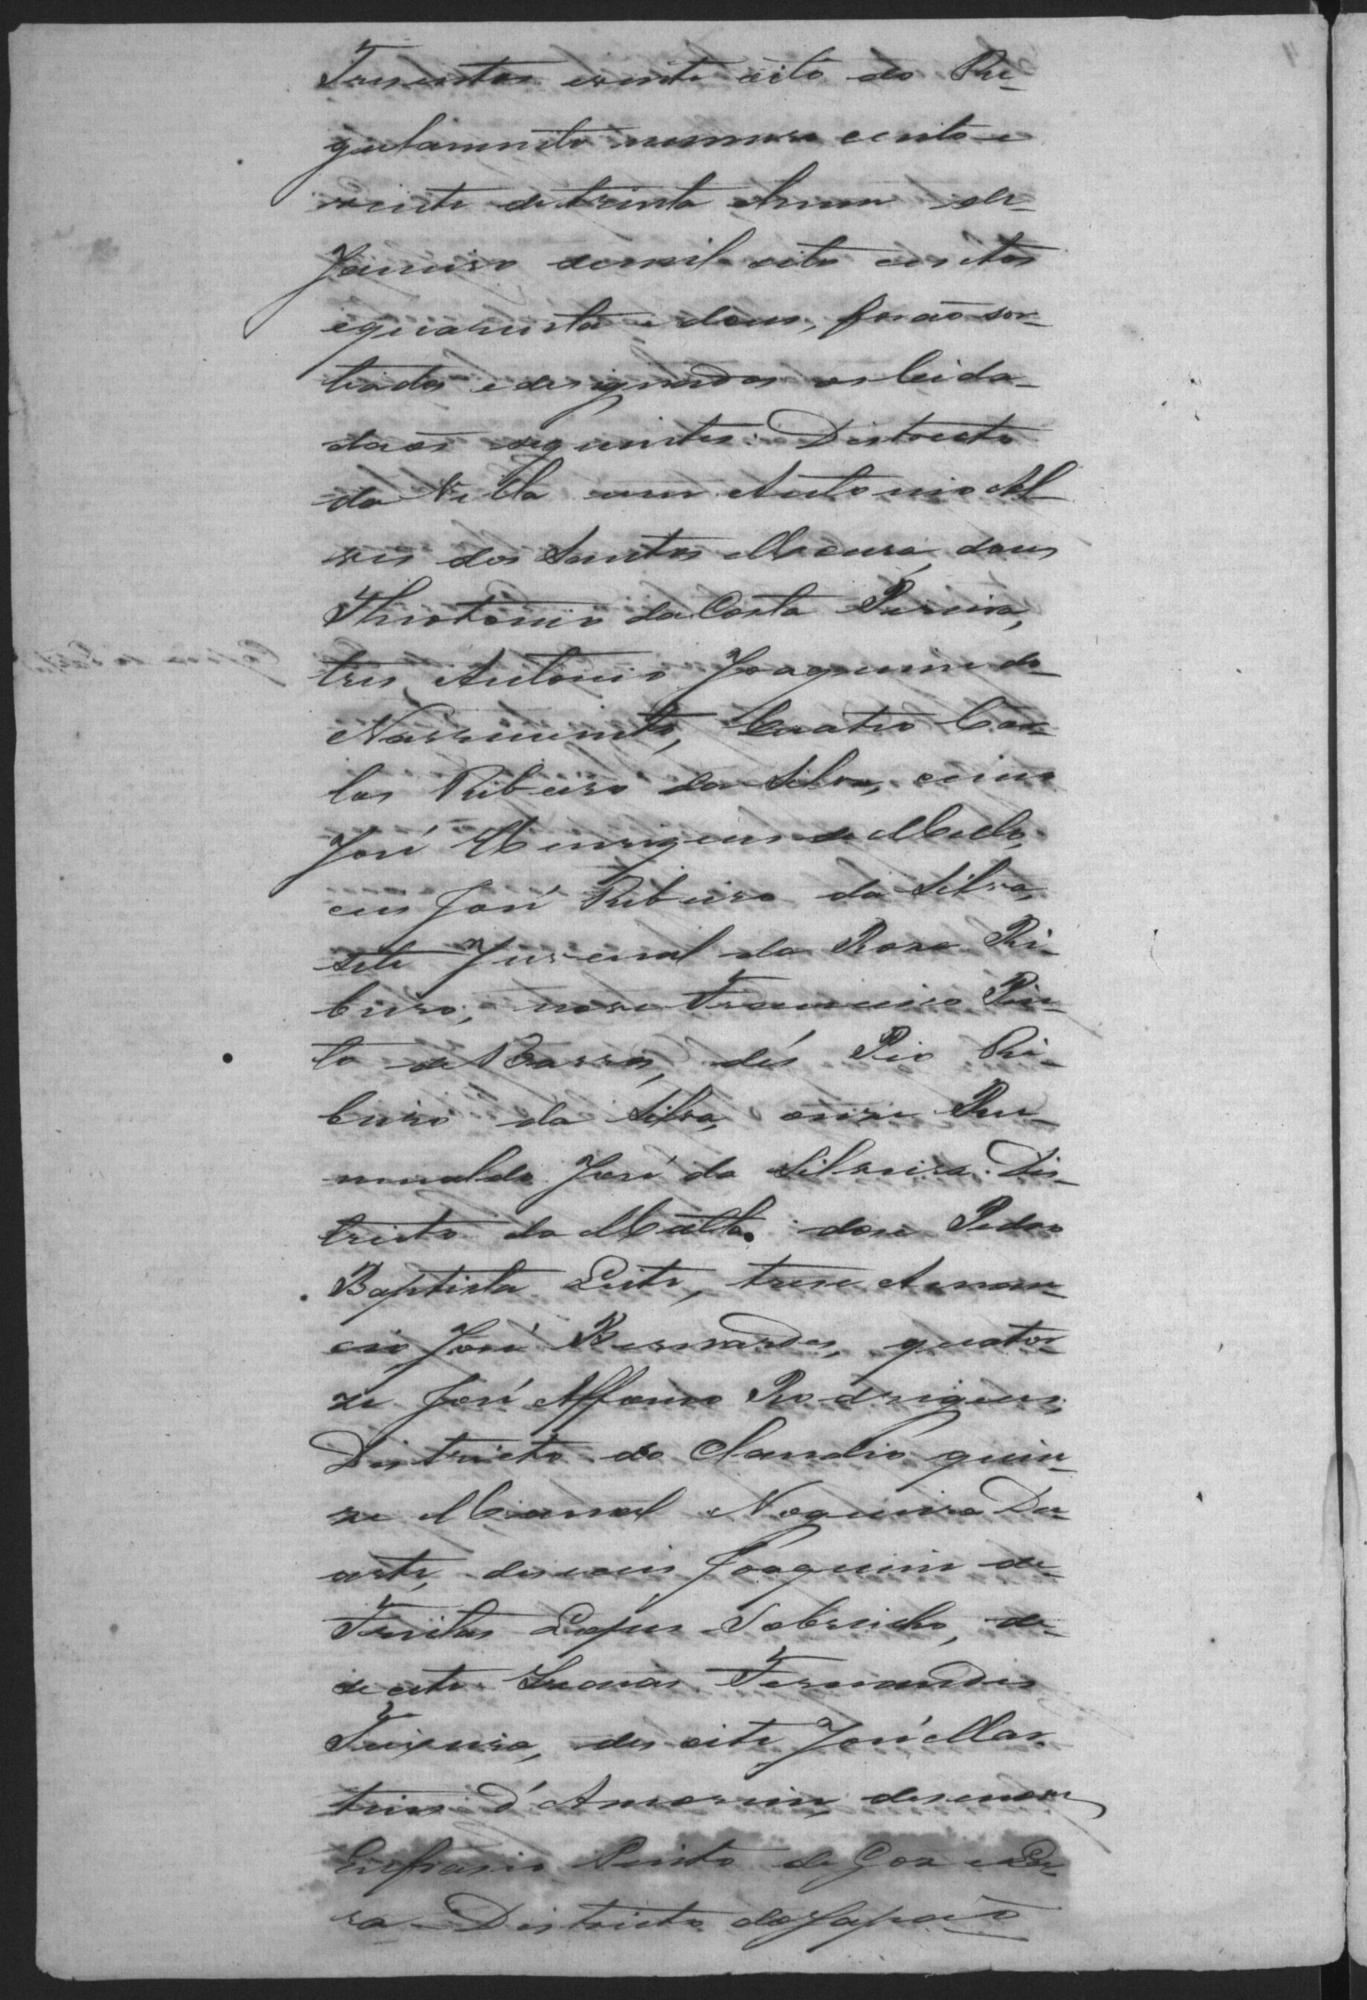 Tresentos evinte oito do Re-
gulamento numero cento e
vinte de trinta ehum de
Janeiro demil oito centos
equarenta e dous, forão sor-
tiados e designados os Cida-
daõs seguintes: Districto
da Villa um Antonio Al
ves dos Santos Moura, dous
Theotonio da Costa Pereira,
tres Antonio Joaquim do
Nascimento, Quatro Car-
los Ribeiro da Silva, cinco
José Henriques de Mello,
ceis José Ribeiro da Silva,
sete Juvenal da Roza Ri-
beiro, nove Francisco Pin-
to de Barros, dés Pio Ri-
beiro da Silva, onze Ru-
mualdo José da Silveira. Dis-
tricto da Matta. doze Pedro
Baptista Leite, treze Aman-
cio José Bernardes, quator-
ze José Affonso Rodrigues,
Districto do Claudio quin-
ze Manoel Nogueira Du-
arte, deseceis Joaquim de
Freitas Lopes Sobrinho, de-
zecete Fernandes
Teixeira, des oito José Mar-
tins d'Amorim, desenove
Eufrasio Pinto de Goz e La-
ra Districto do Japão